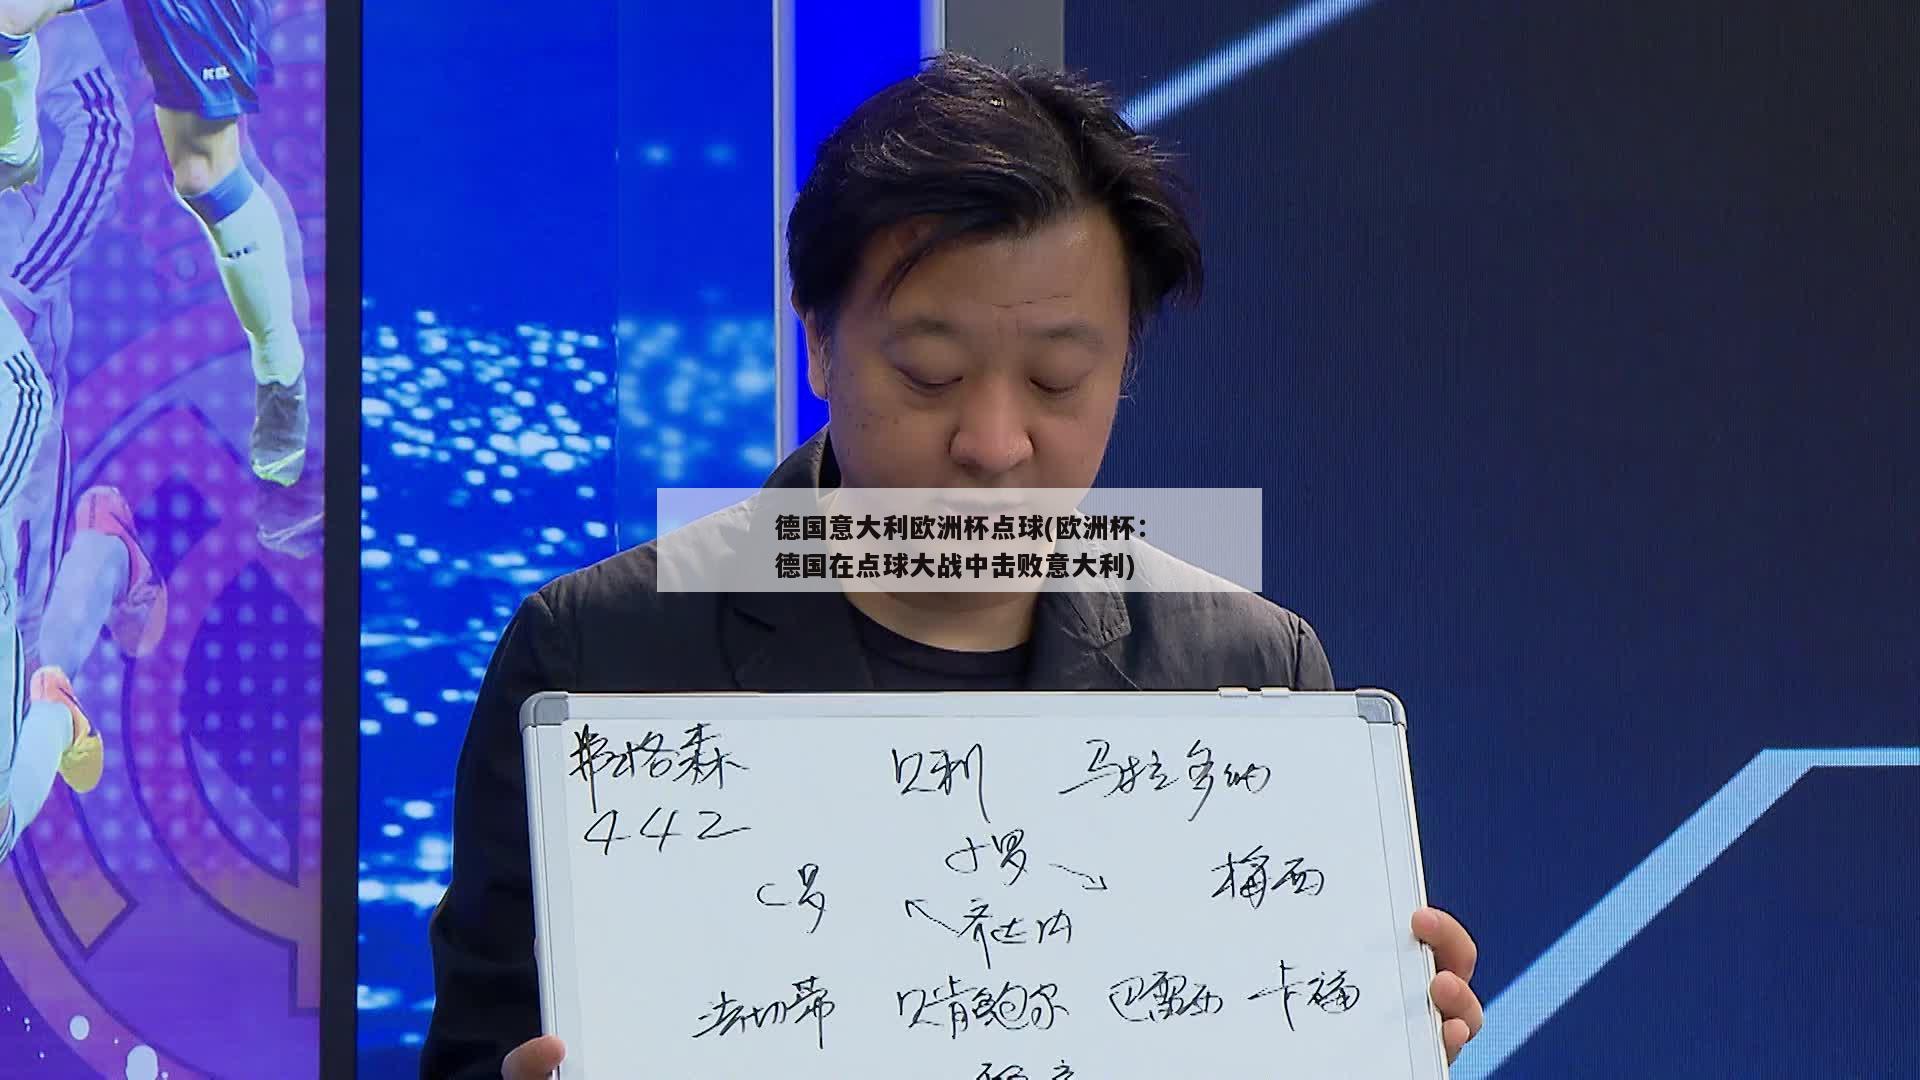 德国意大利欧洲杯点球(欧洲杯:
德国在点球大战中击败意大利)
弗格森 贝利 马拉多纳
442
小罗
C罗 梅西
齐达内
法切蒂 贝肯鲍尔 巴雷西 卡福